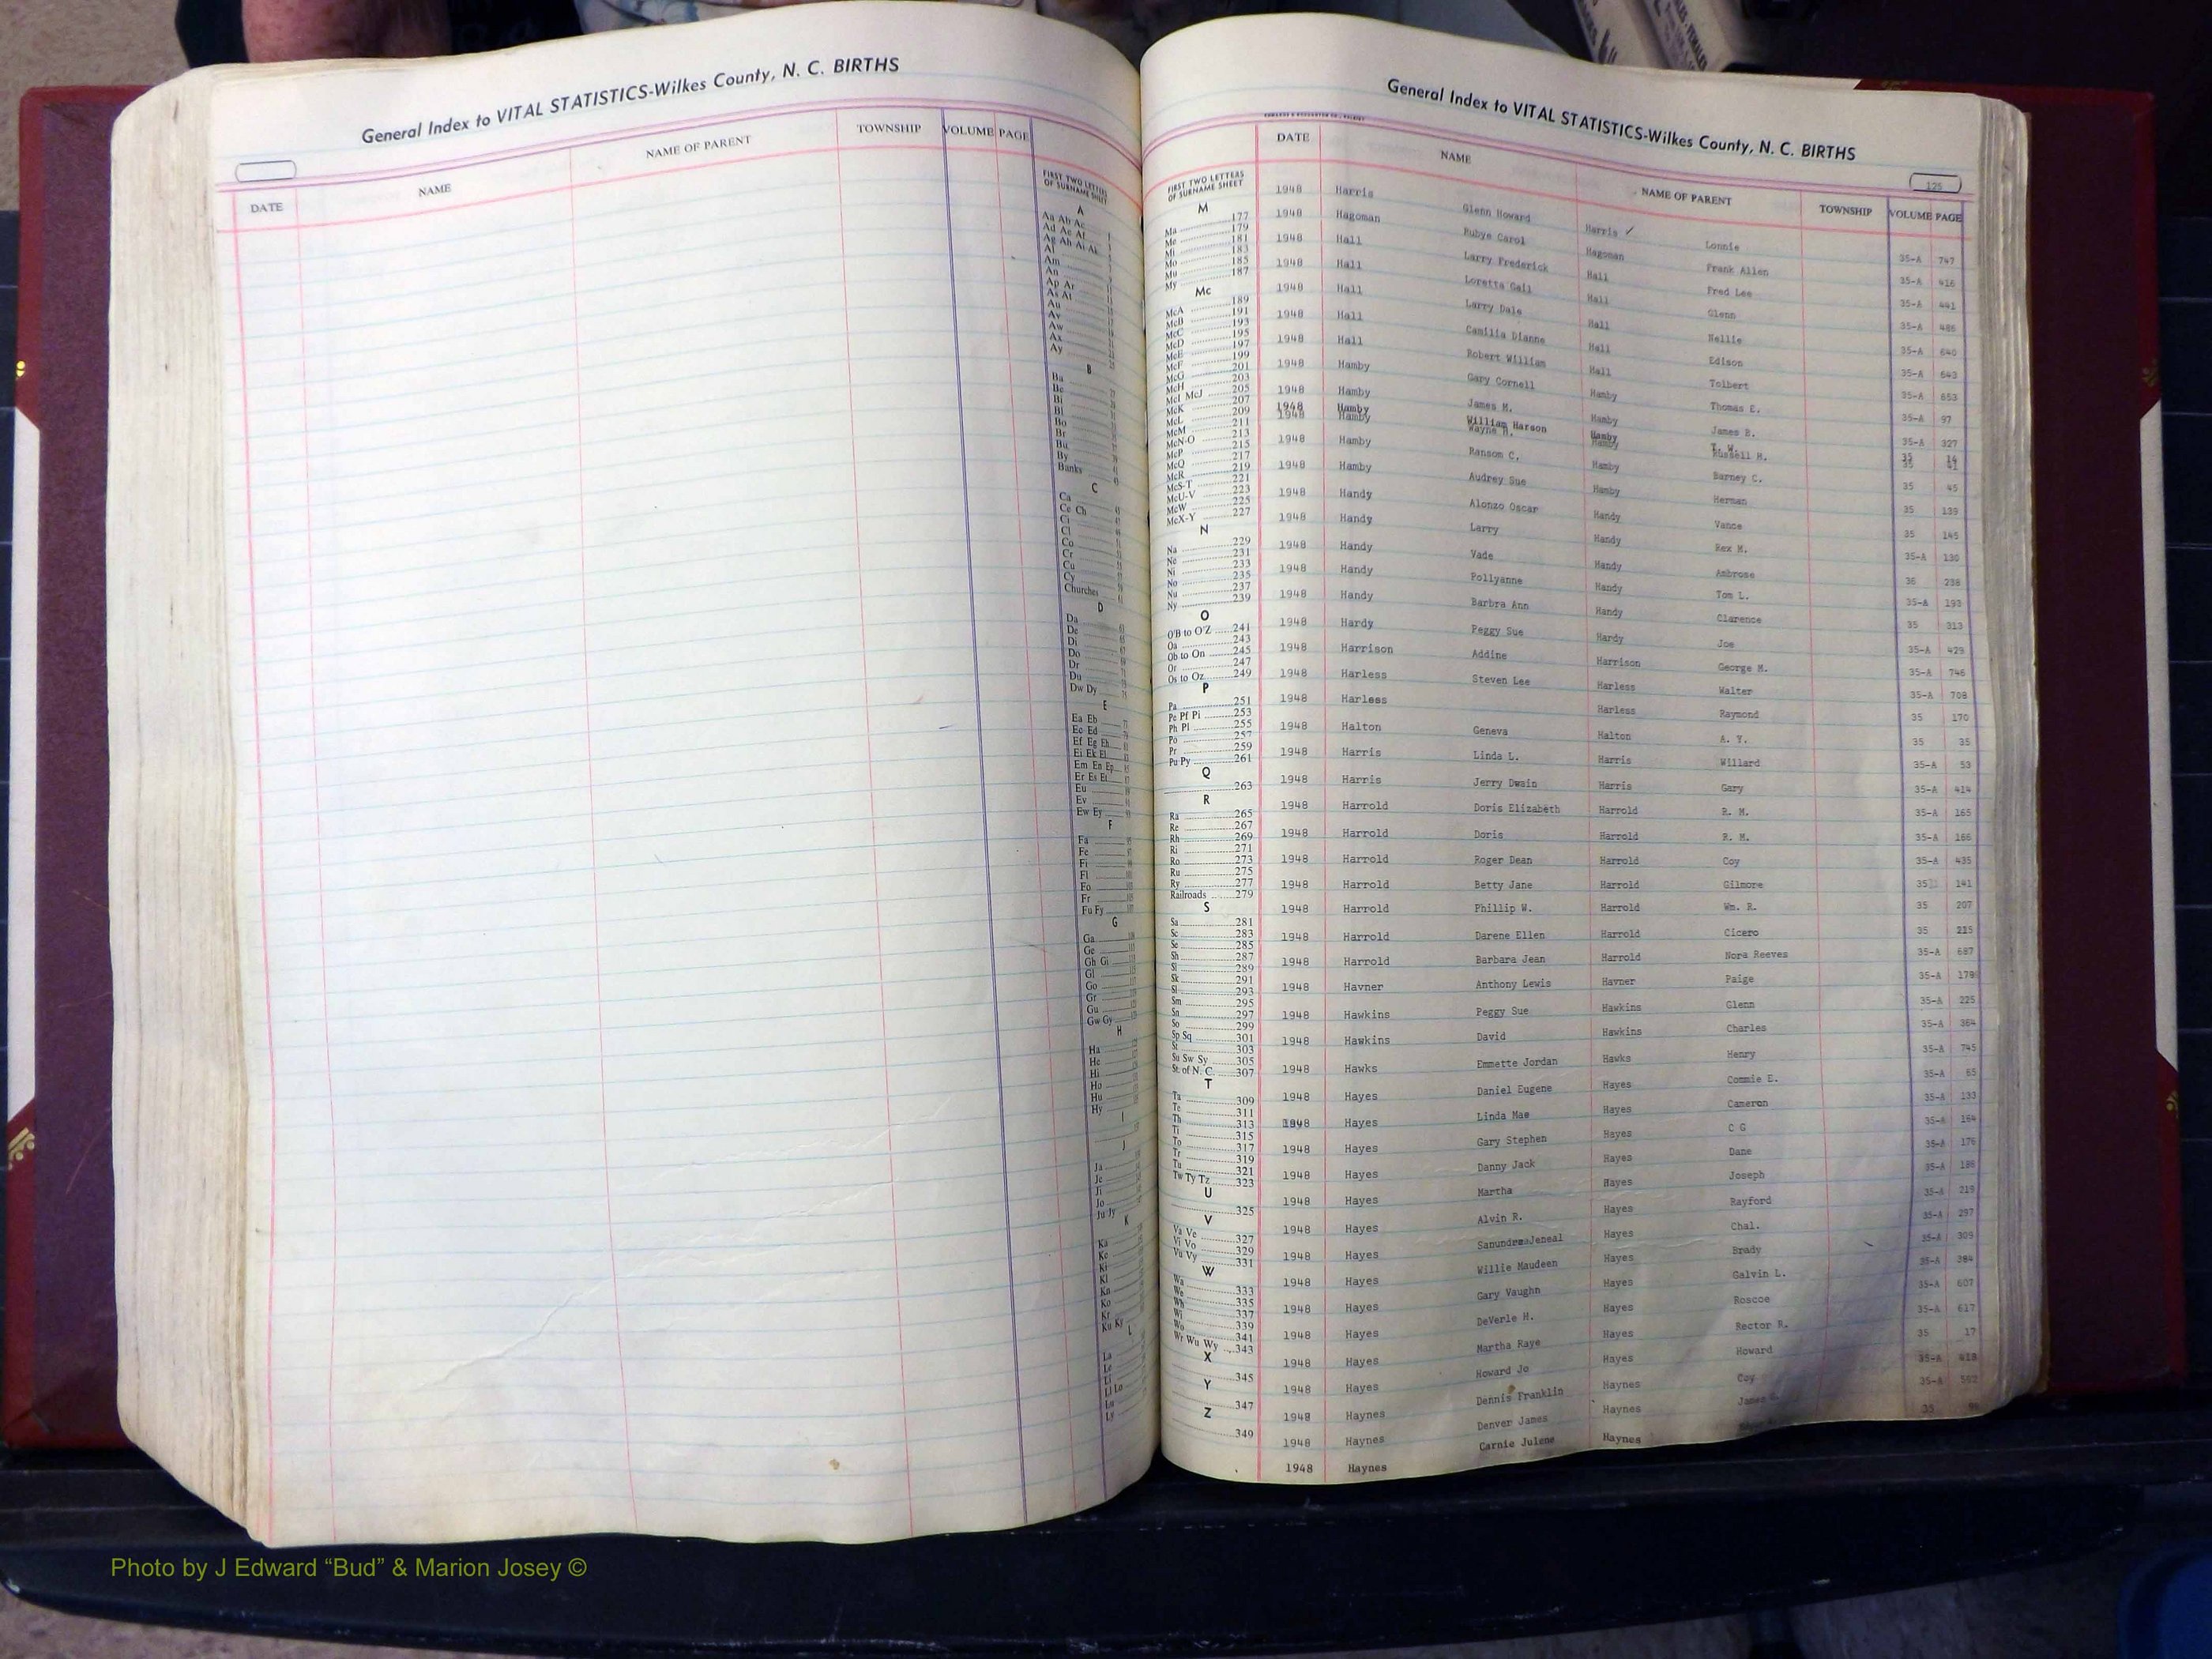 General Index to VITAL STATISTICS-Wilkes County, N. C. BIRTHS
DATE NAME NAME OF PARENT TOWNSHIP VOLUME PAGE
FIRST TWO LETTERS
OF SURNAME SHEET
A
Aa Ab Ac
Ad Ae Af
Ag Ah Ai Ak
Al
Am
An
Ap Ar
As At
Au
Av
Aw
Ax
Ay
B
Ba
Be
Bi
Bl
Bo
Br
Bu
By
Banks
C
Ca
Ce Ch
Ci
Cl
Co
Cr
Cu
Cy
Churches
D
Da
De
Di
Do
Dr
Du
Dw Dy
E
Ea Eb
Ec Ed
Ef Eg Eh
Ei Ek El
Em En Ep
Er Es Et
Eu
Ev
Ew Ey
F
Fa
Fe
Fi
Fl
Fo
Fr
Fu Fy
G
Ga
Ge
Gh Gi
Gl
Go
Gr
Gu
Gw Gy
H
Ha
He
Hi
Ho
Hu
Hy
I
J
Ja
Je
Ji
Jo
Ju Jy
K
Ka
Ke
Ki
Kl
Kn
Ko
Kr
Ku Ky
L
La
Le
Li
Ll Lo
Lu
Ly
General Index to VITAL STATISTICS-Wilkes County, N. C. BIRTHS
125
FIRST TWO LETTERS
OF SURNAME SHEET
M
Ma 177
Me 179
Mi 181
Mo 183
Mu 185
My 187
Mc
McA 189
McB 191
McC 193
McD 195
McE 197
McF 199
McG 201
McH 203
McI McJ 205
McK 207
McL 209
McM 211
McN-O 213
McP 215
McQ 217
McR 219
McS-T 221
McU-V 223
McW 225
McX-Y 227
N
Na 229
Ne 231
Ni 233
No 235
Nu 237
Ny 239
O
O'B to O'Z 241
Oa 243
Ob to On 245
Or 247
Os to Oz 249
P
Pa 251
Pe Pf Pi 253
Ph Pl 255
Po 257
Pr 259
Pu Py 261
Q
263
R
Ra 265
Re 267
Rh 269
Ri 271
Ro 273
Ru 275
Ry 277
Railroads 279
S
Sa 281
Sc 283
Se 285
Sh 287
Si 289
Sk 291
Sl 293
Sm 295
Sn 297
So 299
Sp Sq 301
St 303
Su Sw Sy 305
St. of N. C. 307
T
Ta 309
Te 311
Th 313
Ti 315
To 317
Tr 319
Tu 321
Tw Ty Tz 323
U
325
V
Va Ve 327
Vi Vo 329
Vu Vy 331
W
Wa 333
We 335
Wh 337
Wi 339
Wo 341
Wr Wu Wy 343
X
345
Y
347
Z
349
DATE NAME NAME OF PARENT TOWNSHIP VOLUME PAGE
1948 Harris Glenn Howard Harris ✓ Lonnie 35-A 747
1948 Hagoman Rubye Carol Hagoman Frank Allen 35-A 416
1948 Hall Larry Frederick Hall Fred Lee 35-A 441
1948 Hall Loretta Gail Hall Glenn 35-A 486
1948 Hall Larry Dale Hall Nellie 35-A 640
1948 Hall Camilia Dianne Hall Edison 35-A 643
1948 Hall Robert William Hall Tolbert 35-A 653
Hamby Gary Cornell Hamby Thomas E. 35-A 97
1948 Hamby James M. Hamby James R. 35-A 327
1948 Hamby William Harson Hamby T. W. 35 14
1948 Hamby Wayne H. Hamby Russell H. 35 41
1948 Hamby Ransom C. Hamby Barney C. 35 45
1948 Hamby Audrey Sue Hamby Herman 35 139
1948 Handy Alonzo Oscar Handy Vance 35 145
1948 Handy Larry Handy Rex M. 35-A 130
1948 Handy Vade Handy Ambrose 36 238
1948 Handy Pollyanne Handy Tom L. 35-A 193
1948 Handy Barbra Ann Handy Clarence 35 313
1948 Hardy Peggy Sue Hardy Joe 35-A 429
1948 Harrison Addine Harrison George M. 35-A 746
1948 Harless Steven Lee Harless Walter 35-A 708
1948 Harless Harless Raymond 35 170
1948 Halton Geneva Halton A. Y. 35 35
1948 Harris Linda L. Harris Willard 35-A 53
1948 Harris Jerry Dwain Harris Gary 35-A 414
1948 Harrold Doris Elizabeth Harrold R. M. 35-A 165
1948 Harrold Doris Harrold R. M. 35-A 166
1948 Harrold Roger Dean Harrold Coy 35-A 435
1948 Harrold Betty Jane Harrold Gilmore 35 141
1948 Harrold Phillip W. Harrold Wm. R. 35 207
1948 Harrold Darene Ellen Harrold Cicero 35 215
1948 Harrold Barbara Jean Harrold Nora Reeves 35-A 687
1948 Havner Anthony Lewis Havner Paige 35-A 178
1948 Hawkins Peggy Sue Hawkins Glenn 35-A 225
1948 Hawkins David Hawkins Charles 35-A 364
1948 Hawks Emmette Jordan Hawks Henry 35-A 745
1948 Hayes Daniel Eugene Hayes Commie E. 35-A 65
1948 Hayes Linda Mae Hayes Cameron 35-A 133
1948 Hayes Gary Stephen Hayes C G 35-A 164
1948 Hayes Danny Jack Hayes Dane 35-A 176
1948 Hayes Martha Hayes Joseph 35-A 186
1948 Hayes Alvin R. Hayes Rayford 35-A 219
1948 Hayes Jeneal Hayes Chal. 35-A 297
1948 Hayes Willie Maudeen Hayes Brady 35-A 309
1948 Hayes Gary Vaughn Hayes Galvin L. 35-A 384
1948 Hayes DeVerle H. Hayes Roscoe 35-A 607
1948 Hayes Martha Kaye Hayes Rector R. 35-A 617
1948 Hayes Howard Jo Hayes Howard 35 17
1948 Haynes Dennis Franklin Haynes Coy 35-A 418
1948 Haynes Denver James Haynes James 35-A 592
1948 Haynes Carnie Julene Haynes 35
Photo by J Edward “Bud” & Marion Josey ©